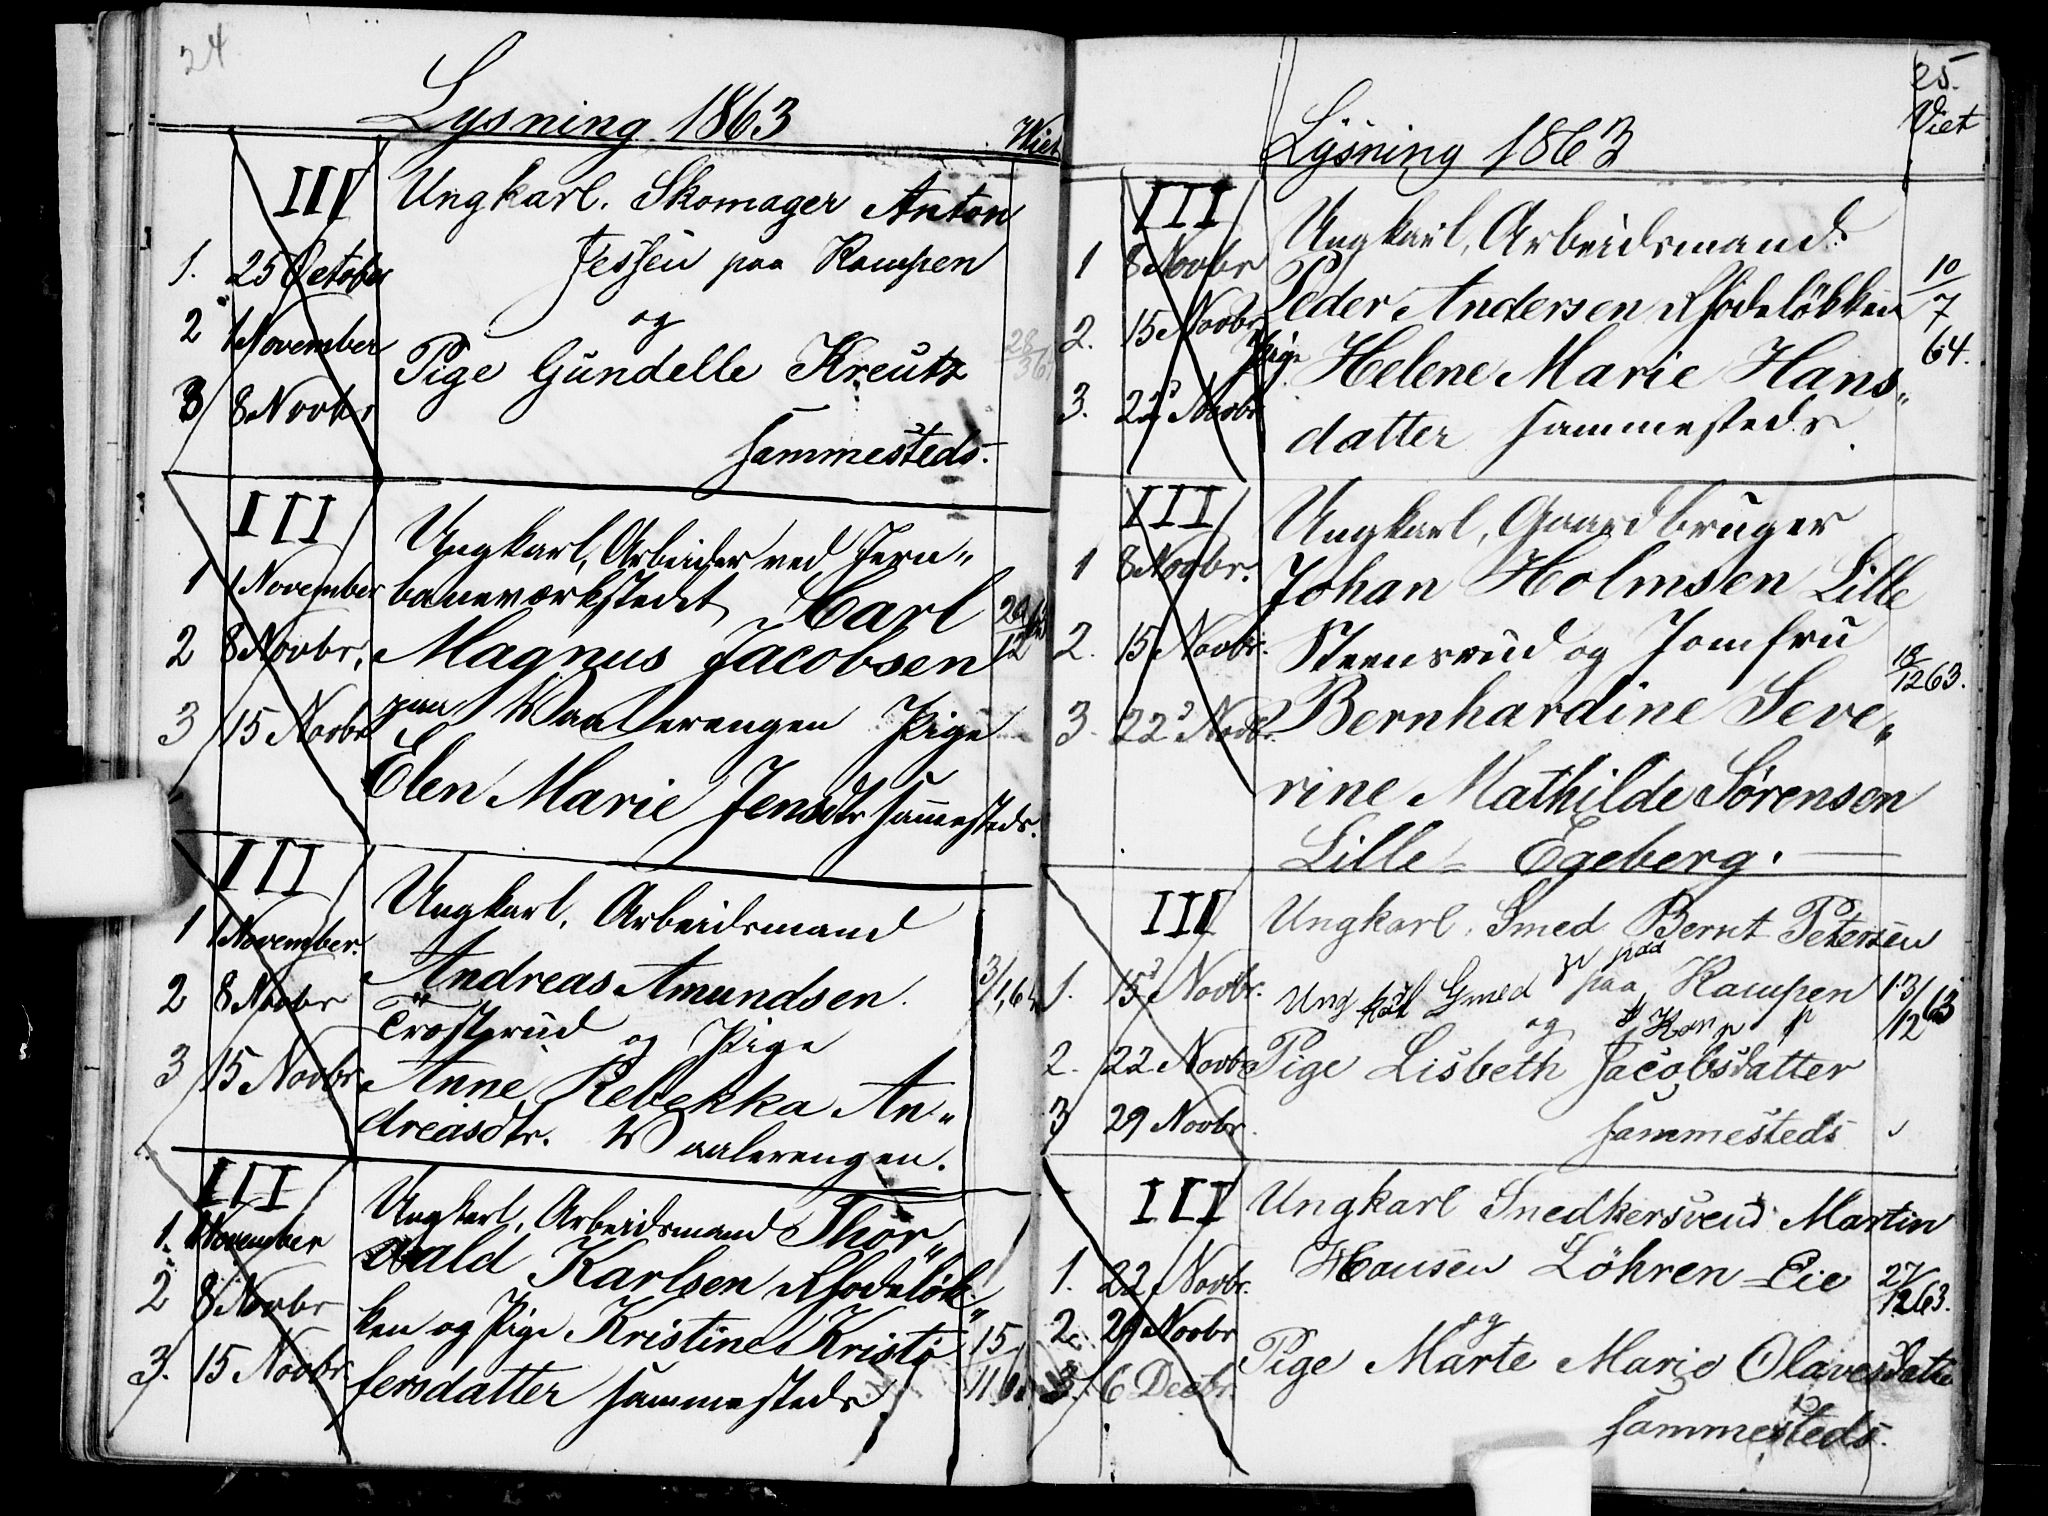 24
Lysning 1863
Viet
III Ungkarl. Skomager Anton
1. 25 October Jessen paa Kampen
2 1 November og
Pige Gundelle Kreutz
3 8 Novbr
sammesteds.
III
Ungkarl, Arbeider ved Jern„
1 1 November baneværkstedet, Carl
2 8 Novbr. Magnus Jacobsen
12
3 15 Novbr paa Waalerengen Pige
Elen Marie Jensdtr sammesteds.
III
Ungkarl, Arbeidsmand
1 1 November.
Andreas Amundsen. 3/1 64
2 8 Novbr
Trosterud og Pige
3 15 Novbr Anne Rebekka An„
dreasdtr. Waalerengen.
III
Ungkarl, Arbeidsmand Thor„
1. 1 November
vald Karlsen Rhodeløk„
2 8 Novbr
ken og Pige Kristine Kristo 15
3. 15 Novbr. fersdatter sammesteds. 11
25.
Viet
Lysning 1863
III
Ungkarl, Arbeidsmand
1 8 Novbr
Peder Andersen Rhodeløkken 10/7 64.
2. 15 Novbr
Pige Helene Marie Hans„
3. 22 Novbr
datter sammesteds.
III
Ungkarl, Gaardbruger
1 8 Novbr.
Johan Holmsen Lille
2. 15 Novbr. Steensrud og Jomfru
18/12 63.
3. 22 Novbr. Bernhardine Seve„
rine Mathilde Sørensen
Lille Egeberg.
III Ungkarl. Smed Bernt Petersen
1. 15 Novbr. paa Kampen 13/12 63
og
2. 22 Novbr Pige Lisbeth Jacobsdatter
3 29 Novbr. sammesteds
III Ungkarl Snedkersvend Martin
1. 22 Novbr. Hansen Løhren Eie 27/12 63.
2. 29 Novbr
og
Pige Marte Marie Olavesdatter
3. 6 Decbr.
sammesteds.